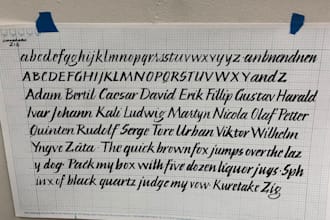 Kuretake
Zig
abcdefghijklmnopqrsstuvwxyyz anbnandnen
ABCDEFGHIJKLMNOPQRSTUVWXY and Z
Adam Bertil Caesar David Erik Fillip Gustav Harald
Ivar Johann Kali Ludwig Martyn Nicola Olaf Petter
Quinten Rudolf Serge Tore Urban Viktor Wilhelm
Yngve Zäta · The quick brown fox jumps over the laz
y dog · Pack my box with five dozen liquor jugs · Sph
inx of black quartz judge my vow · Kuretake Zig